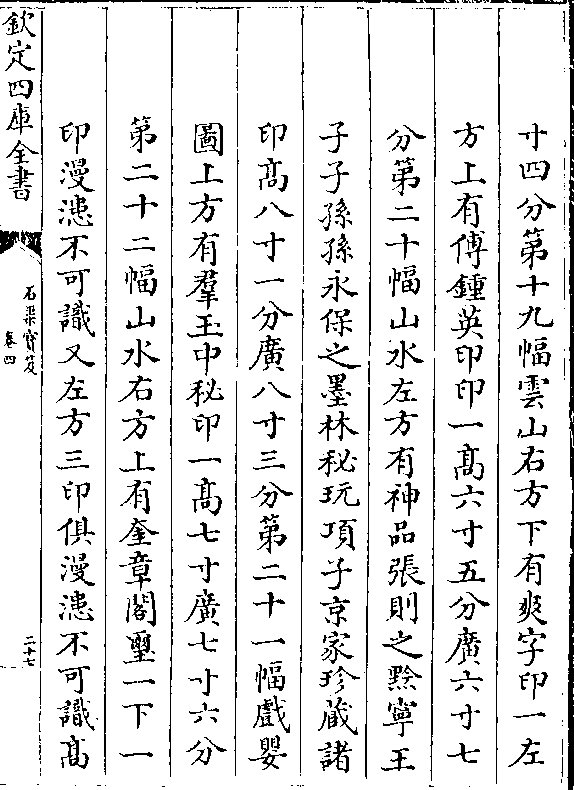 寸四分第十九幅雲山右方下有爽字印一左
方上有傅鍾英印印一高六寸五分廣六寸七
分第二十幅山水左方有神品張則之黔寧王
子子孫孫永保之墨林秘玩項子京家珍蔵諸
印高八寸一分廣八寸三分第二十一幅戲嬰
圖上方有羣玉中秘印一高七寸廣七寸六分
第二十二幅山水右方上有奎章閣璽一下一
印漫漶不可識又左方三印俱漫漶不可識高
欽定四庫全書
石渠寶笈
卷四
二十七